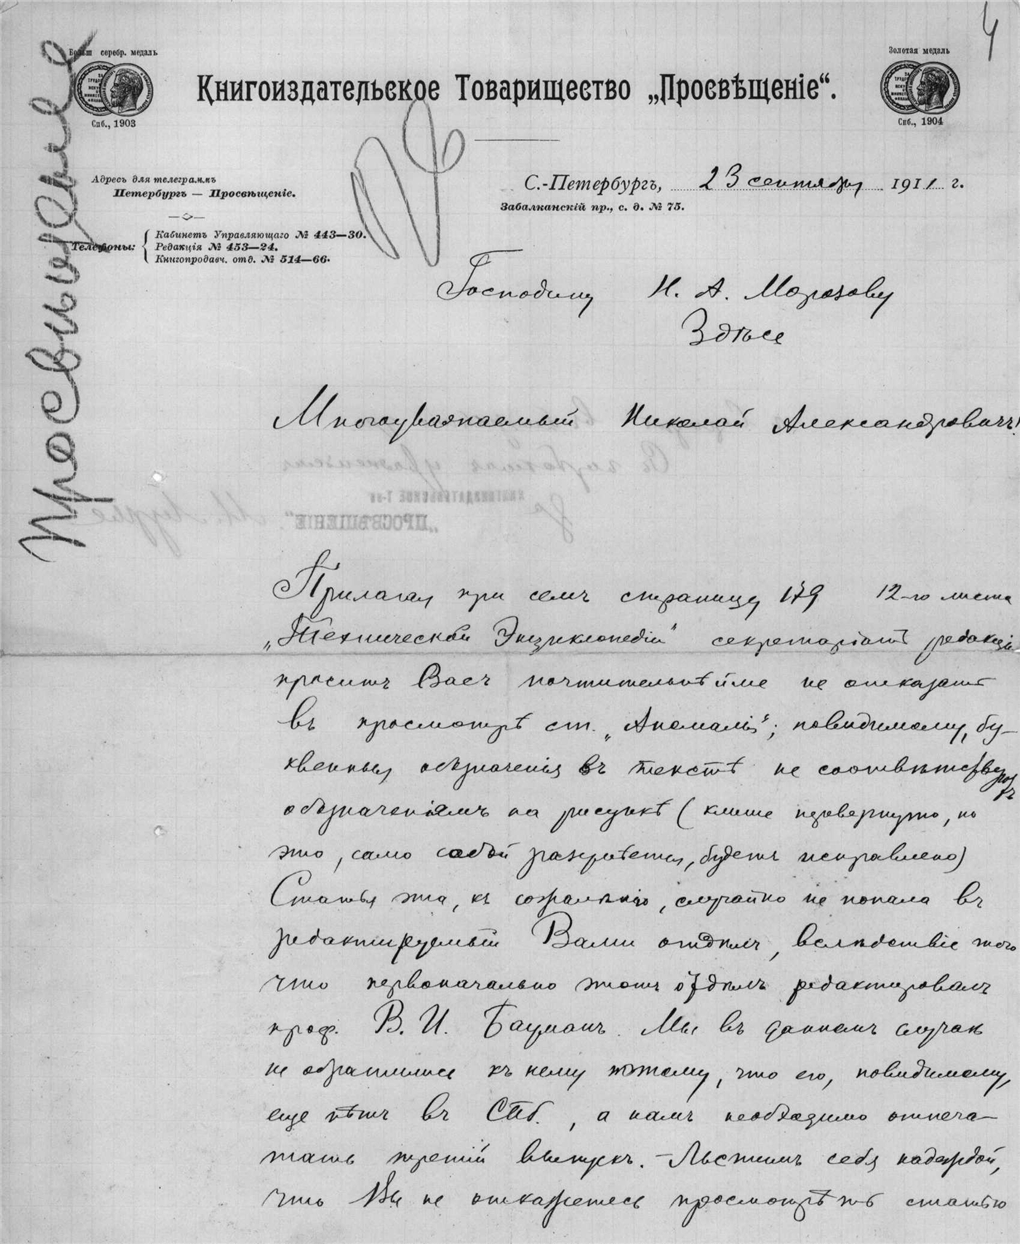 4
Больш серебр. медаль
Спб., 1903
Золотая медаль
Спб., 1904
Книгоиздательское Товарищество „Просвѣщеніе“.
Просвѣщеніе
Адресъ для телеграммъ
Петербургъ — Просвѣщеніе.
Телефоны:
Кабинетъ Управляющаго № 443—30.
Редакція № 453—24.
Книгопродавч. отд. № 514—66.
С.-Петербургъ, 23 сентября 1911 г.
Забалканскій пр., с. д. № 75.
Господину Н. А. Морозову
Здѣсь
Многоуважаемый Николай Александровичъ!
Прилагая при семъ страницу 179 12-го листа
„Технической Энциклопедіи“ секретаріатъ редакціи
проситъ Васъ почтительнѣйше не отказать
въ просмотрѣ ст. „Аномалія“; повидимому, бу-
квенныя обозначенія въ текстѣ не соотвѣтствуютъ
обозначеніямъ на рисункѣ (клише перевернуто, но
это, само собой разумѣется, будетъ исправлено)
Статья эта, къ сожалѣнію, случайно не попала въ
редактируемый Вами отдѣлъ, вслѣдствіе того
что первоначально этотъ отдѣлъ редактировалъ
проф. В. И. Бауманъ. Мы въ данномъ случаѣ
не обратились къ нему потому, что его, повидимому,
еще нѣтъ въ СПб., а намъ необходимо отпеча-
тать третій выпускъ. — Льстимъ себя надеждой,
что Вы не откажетесь просмотрѣть статью